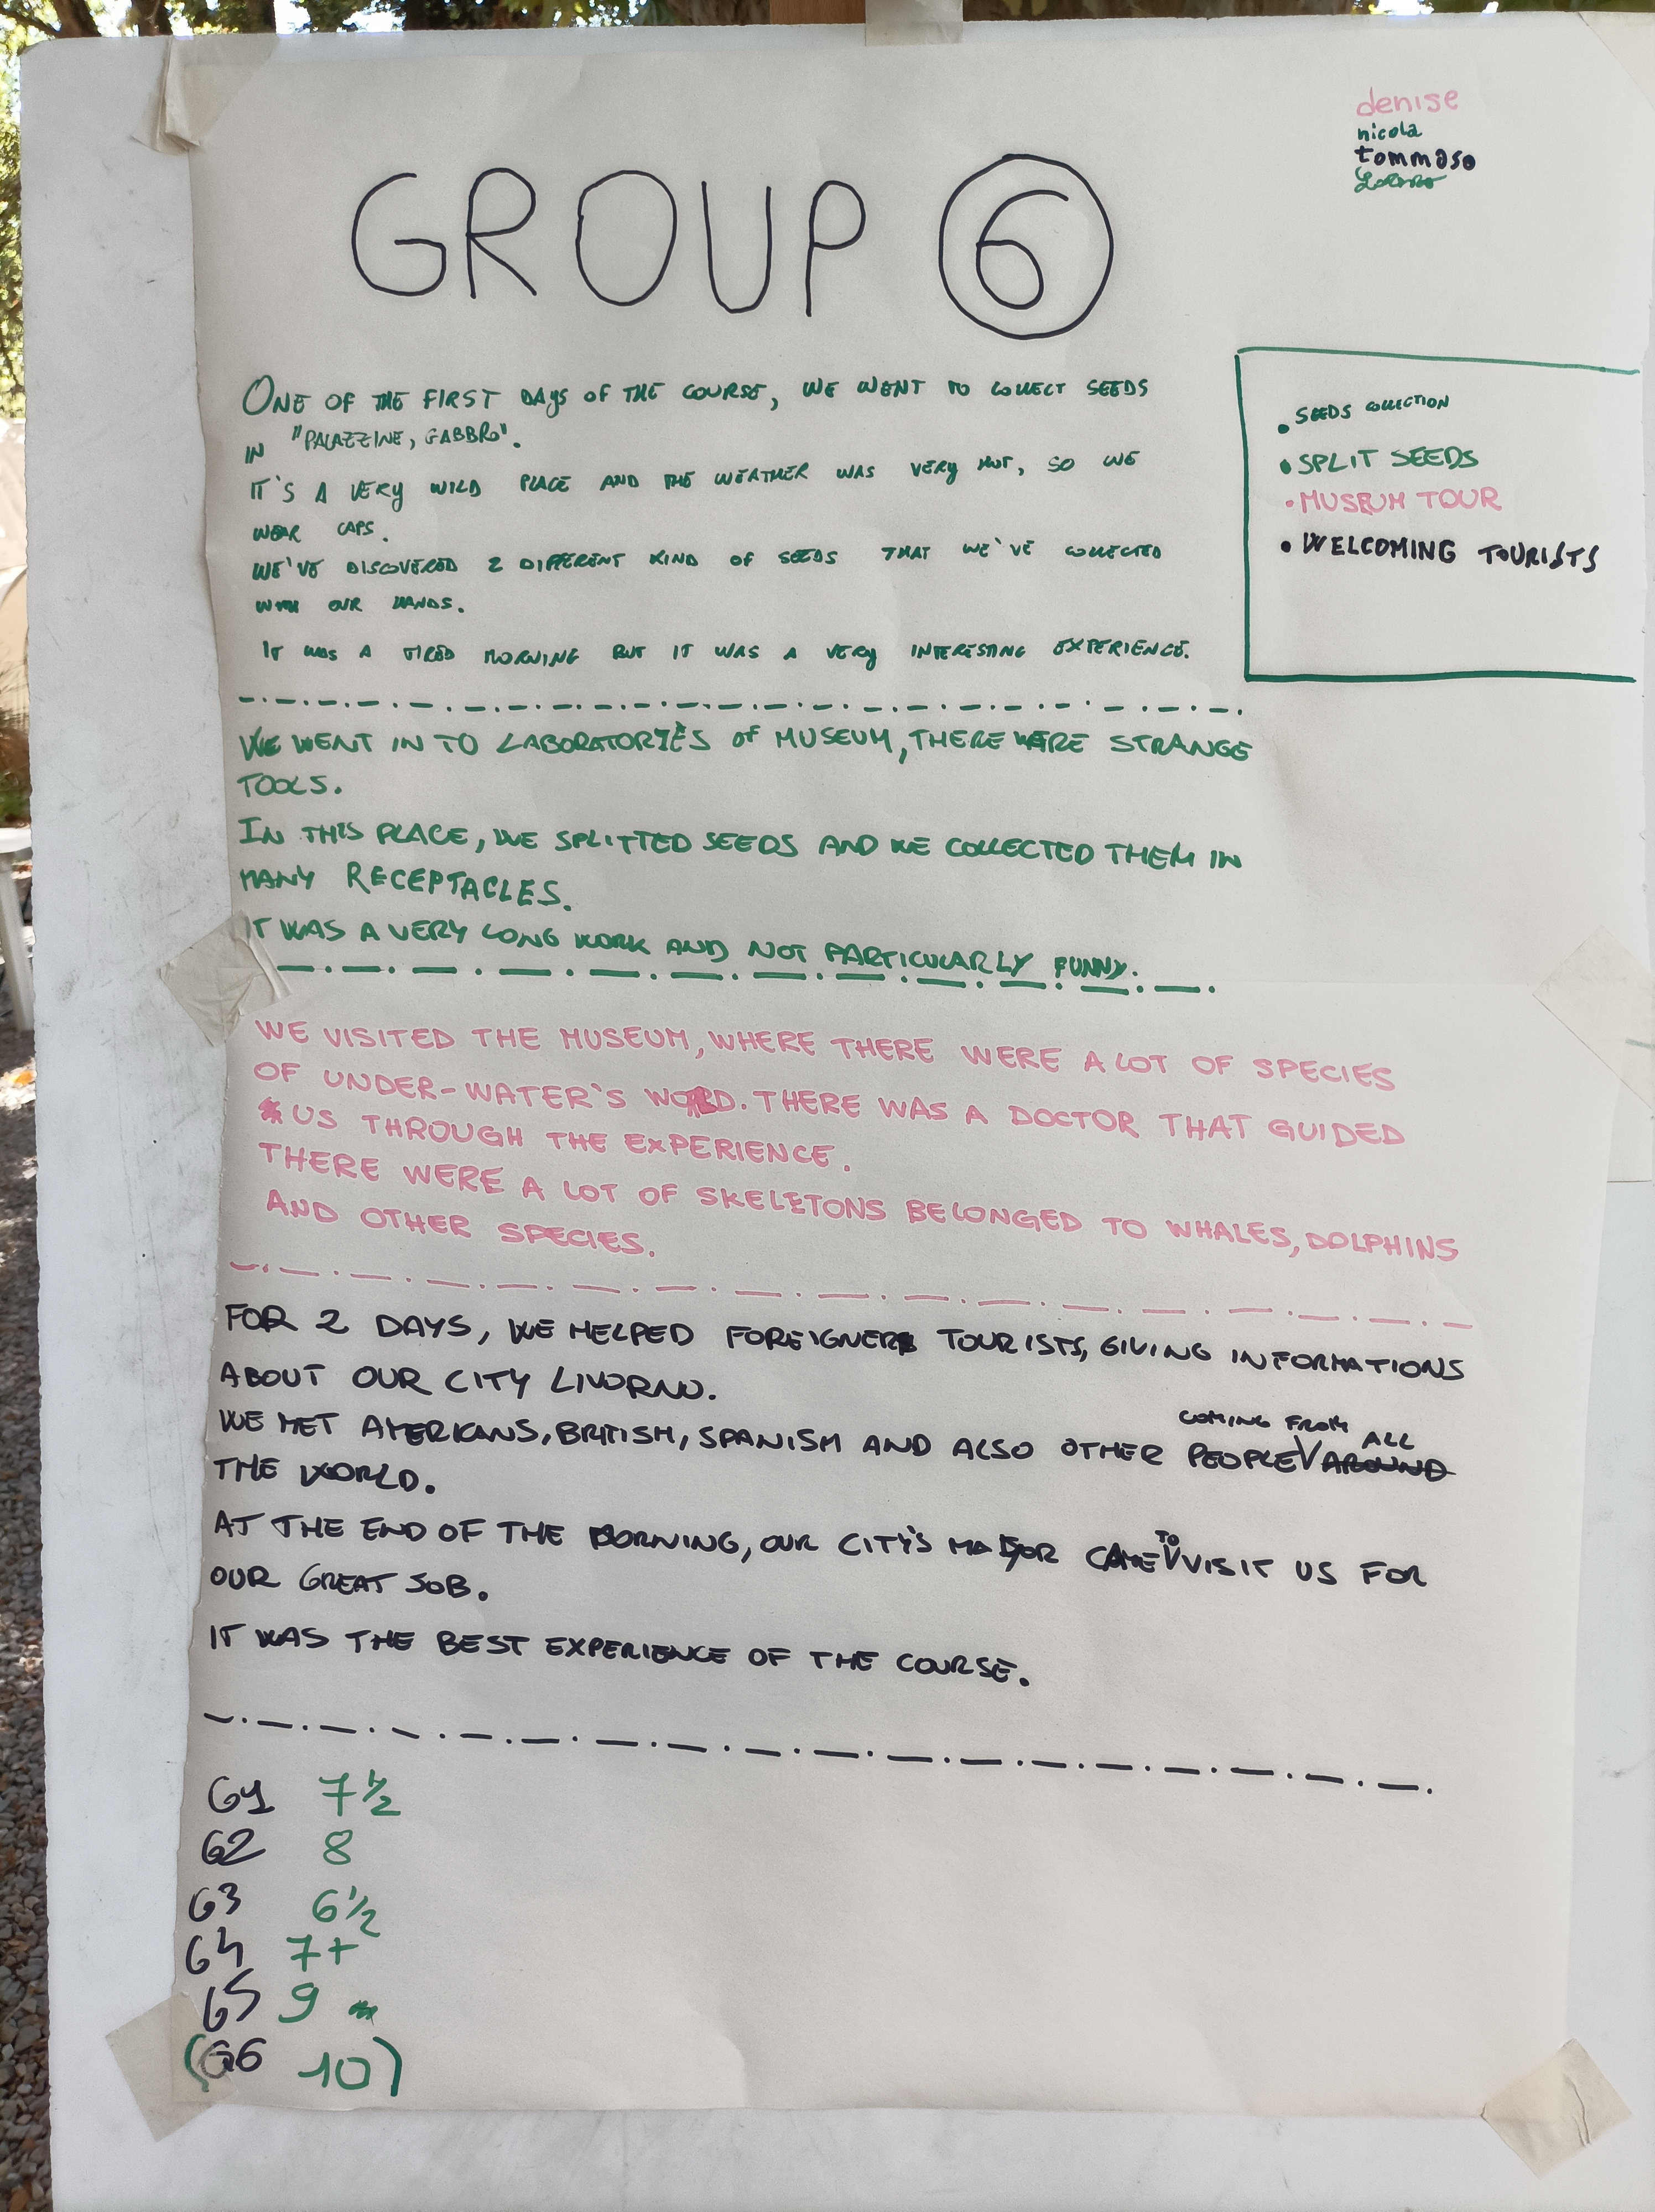 denise
nicola
tommaso
GROUP 6
ONE OF THE FIRST DAYS OF THE COURSE, WE WENT TO COLLECT SEEDS
IN "PALAZZINE, GABBRO".
IT'S A VERY WILD PLACE AND THE WEATHER WAS VERY HOT, SO WE
WEAR CAPS.
WE'VE DISCOVERED 2 DIFFERENT KIND OF SEEDS THAT WE'VE COLLECTED
WITH OUR HANDS.
IT WAS A TIRED MORNING BUT IT WAS A VERY INTERESTING EXPERIENCE.
• SEEDS COLLECTION
• SPLIT SEEDS
• MUSEUM TOUR
• WELCOMING TOURISTS
WE WENT IN TO LABORATORIES OF MUSEUM, THERE WERE STRANGE
TOOLS.
IN THIS PLACE, WE SPLITTED SEEDS AND WE COLLECTED THEM IN
MANY RECEPTACLES.
IT WAS A VERY LONG WORK AND NOT PARTICULARLY FUNNY.
WE VISITED THE MUSEUM, WHERE THERE WERE A LOT OF SPECIES
OF UNDER-WATER'S . THERE WAS A DOCTOR THAT GUIDED
US THROUGH THE EXPERIENCE.
THERE WERE A LOT OF SKELETONS BELONGED TO WHALES, DOLPHINS
AND OTHER SPECIES.
FOR 2 DAYS, WE HELPED FOREIGNER TOURISTS, GIVING INFORMATIONS
ABOUT OUR CITY LIVORNO.
WE MET AMERICANS, BRITISH, SPANISH AND ALSO OTHER PEOPLE COMING FROM ALL
THE WORLD.
AT THE END OF THE MORNING, OUR CITY'S MAJOR CAME TO VISIT US FOR
OUR GREAT JOB.
IT WAS THE BEST EXPERIENCE OF THE COURSE.
G1 7 1/2
G2 8
G3 6 1/2
G4 7+
G5 9
(G6 10)